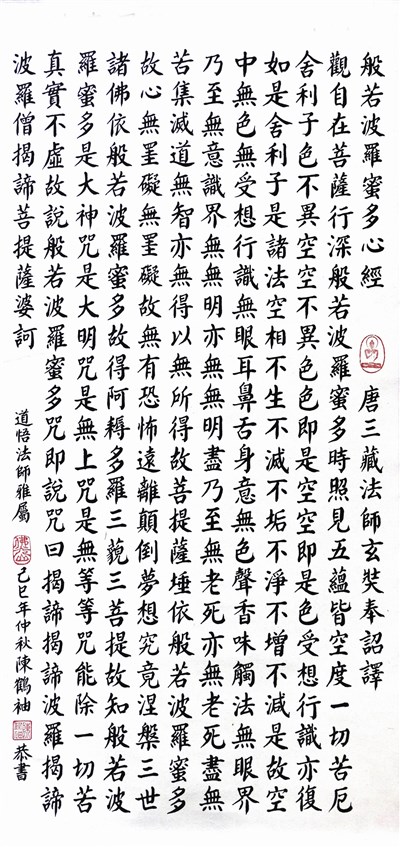 般若波羅蜜多心經 唐三藏法師玄奘奉詔譯
觀自在菩薩行深般若波羅蜜多時照見五蘊皆空度一切苦厄
舍利子色不異空空不異色色即是空空即是色受想行識亦復
如是舍利子是諸法空相不生不滅不垢不淨不增不減是故空
中無色無受想行識無眼耳鼻舌身意無色聲香味觸法無眼界
乃至無意識界無無明亦無無明盡乃至無老死亦無老死盡無
苦集滅道無智亦無得以無所得故菩提薩埵依般若波羅蜜多
故心無罣礙無罣礙故無有恐怖遠離顛倒夢想究竟涅槃三世
諸佛依般若波羅蜜多故得阿耨多羅三藐三菩提故知般若波
羅蜜多是大神咒是大明咒是無上咒是無等等咒能除一切苦
真實不虛故說般若波羅蜜多咒即說咒曰揭諦揭諦波羅揭諦
波羅僧揭諦菩提薩婆訶
道悟法師雅屬 己巳年仲秋陳鶴袖 恭書